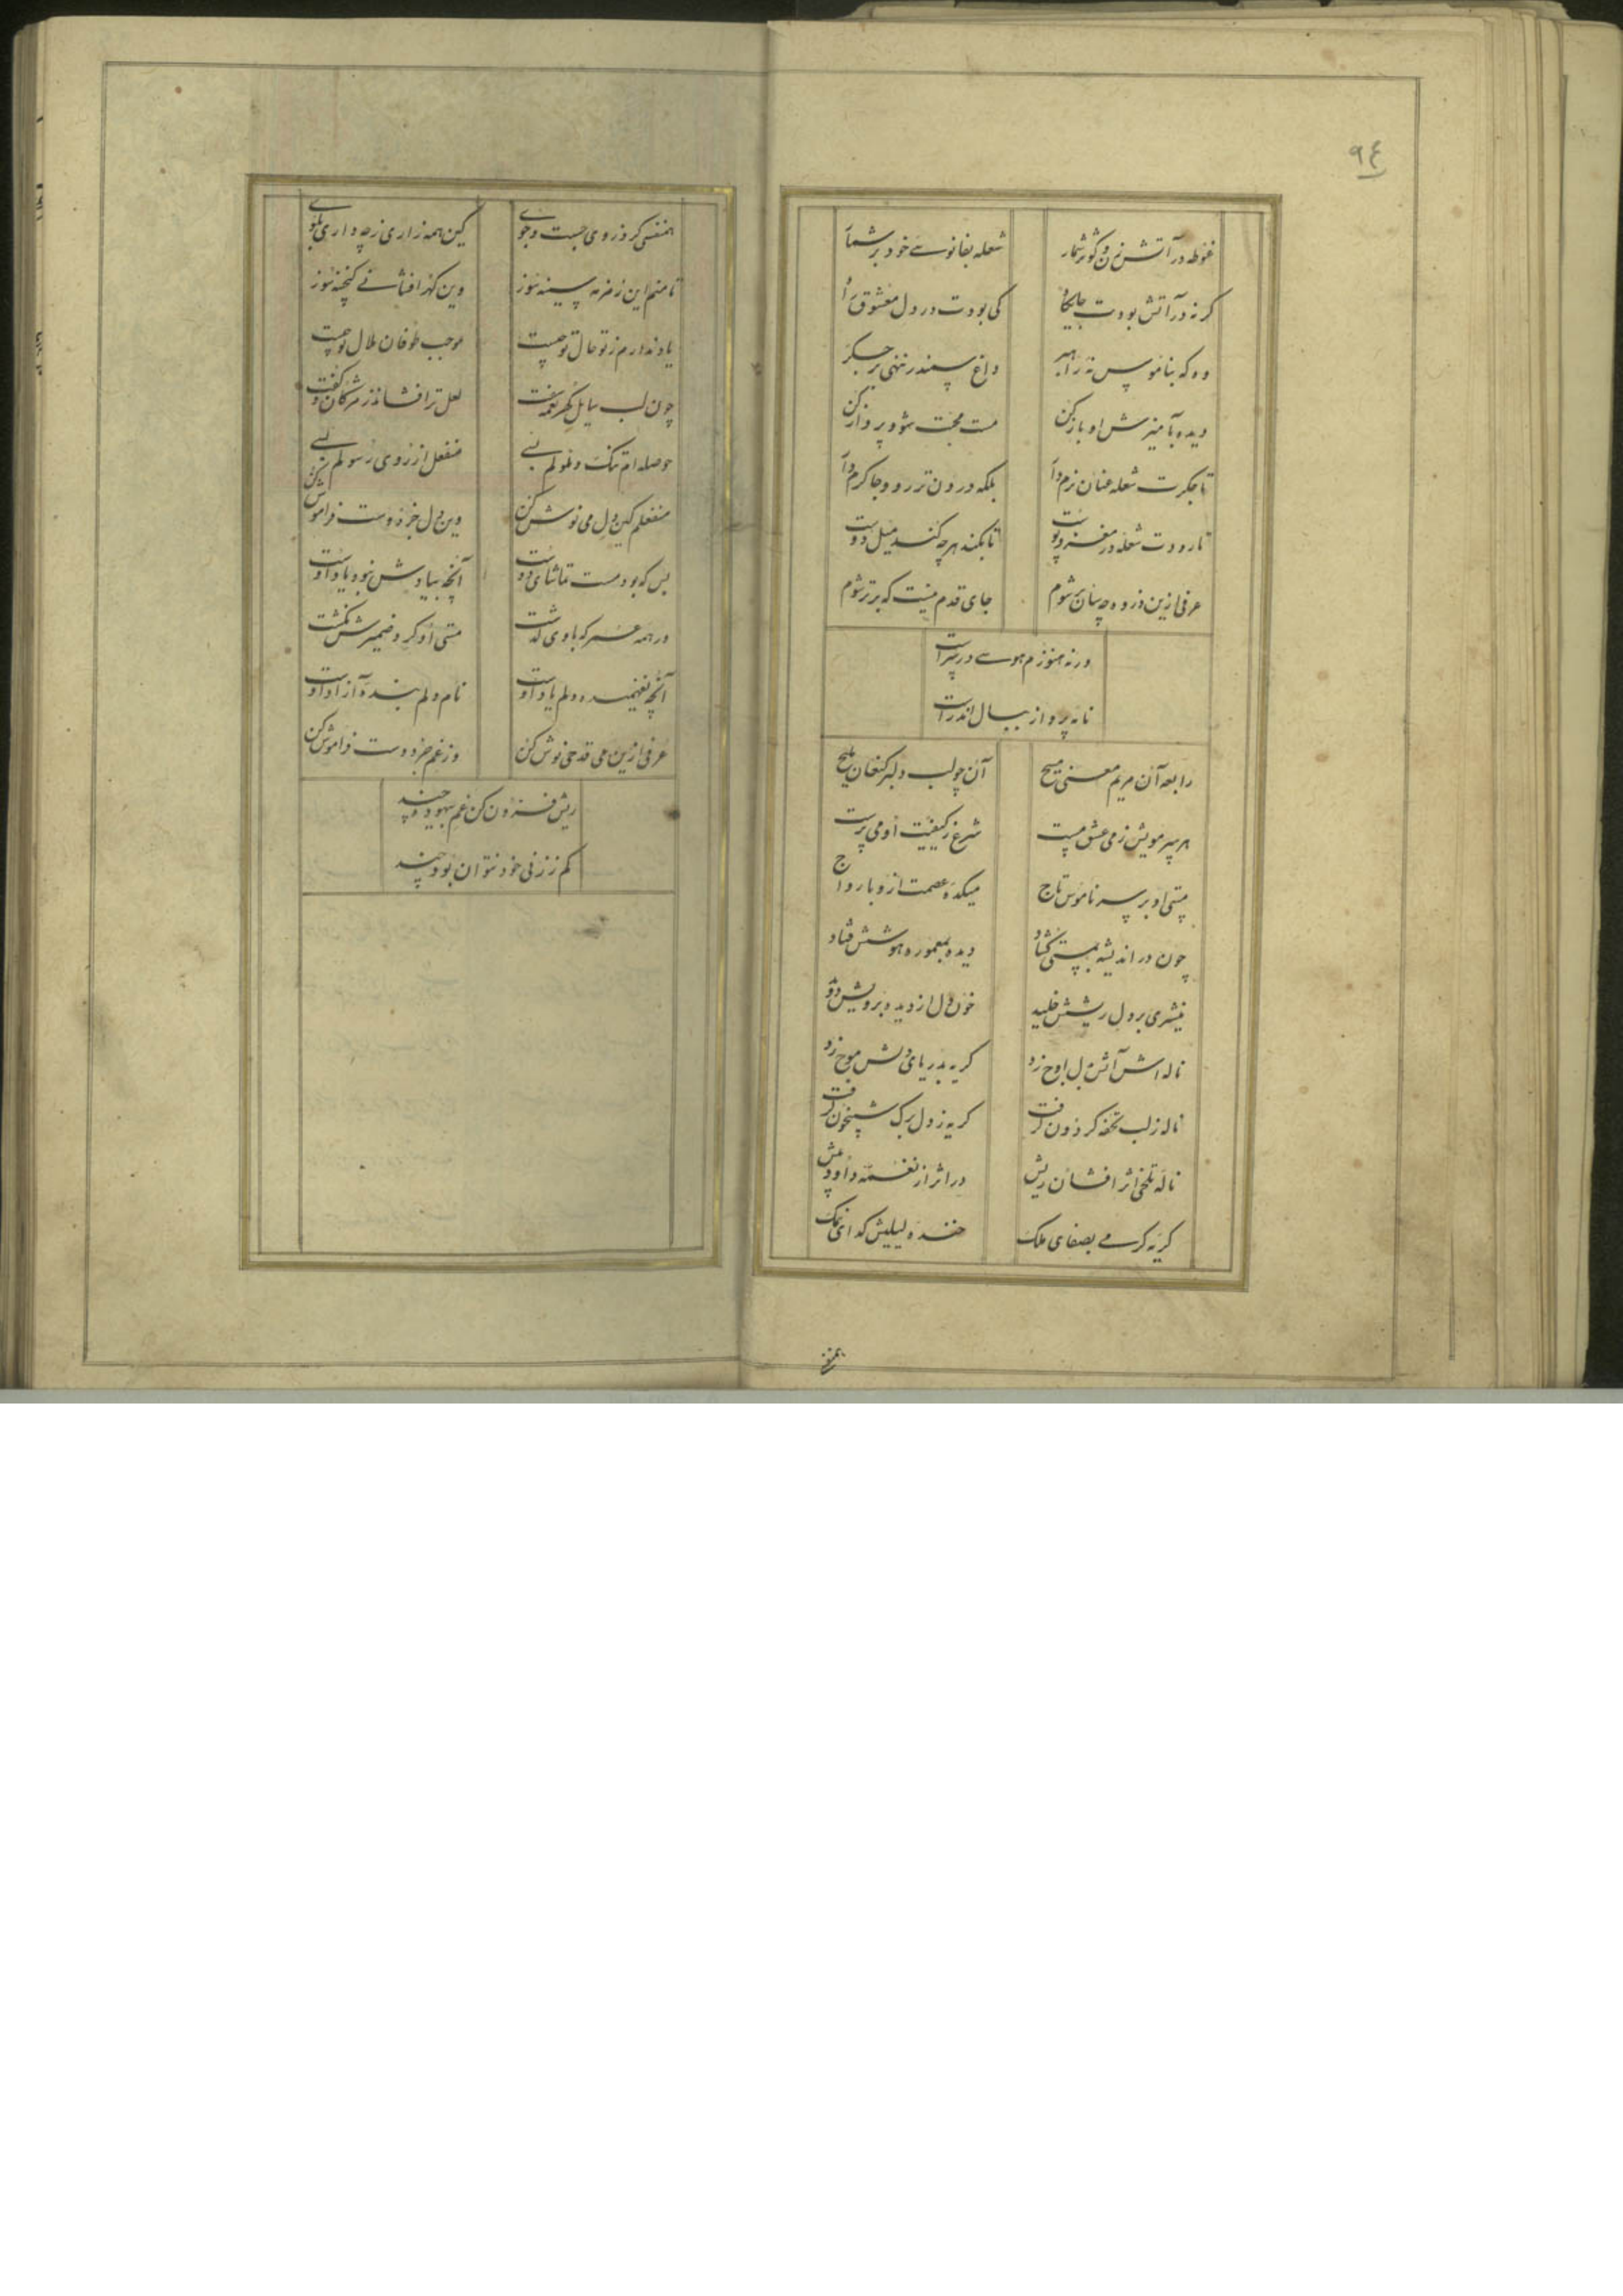 ۹٤
غوطه در آتش زن و کوثر شمار شعله بفانوسے خود بر شمار
کر نه در آتش بودت جایکاه کی بودت در دل معشوق راه
وه که بناموس نه داغ سمندر ننهی بر جکر
دیده بآمیزش او باز کن مست محبت شو و پرواز کن
تا جکرت شعله عنان نرم دار بلکه درون تر رو و جا کرم دار
تا رودت شعله در مغز و پوست تا بکند هر چه کند میل دوست
عرفی ازین ذروه چسان بر شوم جای قدم نیست که برتر شوم
ورنه هنوزم هوسے در سر است
نا به پرواز ببال اندر است
رابعه آن مریم معنی مسیح آن چو لب دلبر کنعان ملیح
هر سر مویش ز می عشق مست شرع ز کیفیت او می پرست
مستی او بر سر ناموس تاج میکده عصمت ازو با رواج
چون در اندیشه بمستی کشاد دیده بمعموره هوشش فتاد
نیشتری بر دل ریشش خلید خون دل از دیده برویش دوید
ناله اش آتش دل اوج زد کریه بدریای دلش موج زد
ناله ز لب تحفه کردون کرفت کریه ز دل برک شبیخون کرفت
ناله تلخی اثر افشان ریش در اثر از نغمه داود بیش
کریه کرمے بصفای ملک خنده لیلیش کدای نمک
همنفسی کرد ز وی جست و جوے کین همه زاری ز چه داری بکوے
تا منم این زمزمه سینه سوز وین کهر افشانے کنجینه سوز
یاد ندارم ز تو حال تو چیست موجب طوفان ملال تو چیست
چون لب سایل کهر نغمه سفت لعل تر افشاند ز مژکان و کفت
حوصله ام تنک و ملولم بسے منفعل از روی رسولم بسے
منفعلم کین دل می نوش کن وین دل جز دوست فراموش کن
بس که بود مست تماشای دوست آنچه بیادش نبود یاد اوست
در همه عمر که با وی کذشت مستی او کرد ضمیرش نکشت
آنچه نفهمیده دلم یاد اوست نام دلم بنده آزاد اوست
عرفی ازین می قدحی نوش کن وز غم جز دوست فراموش کن
ریش فزون کن غم بهبود چند
کم ز زنی خود نتوان بود چند